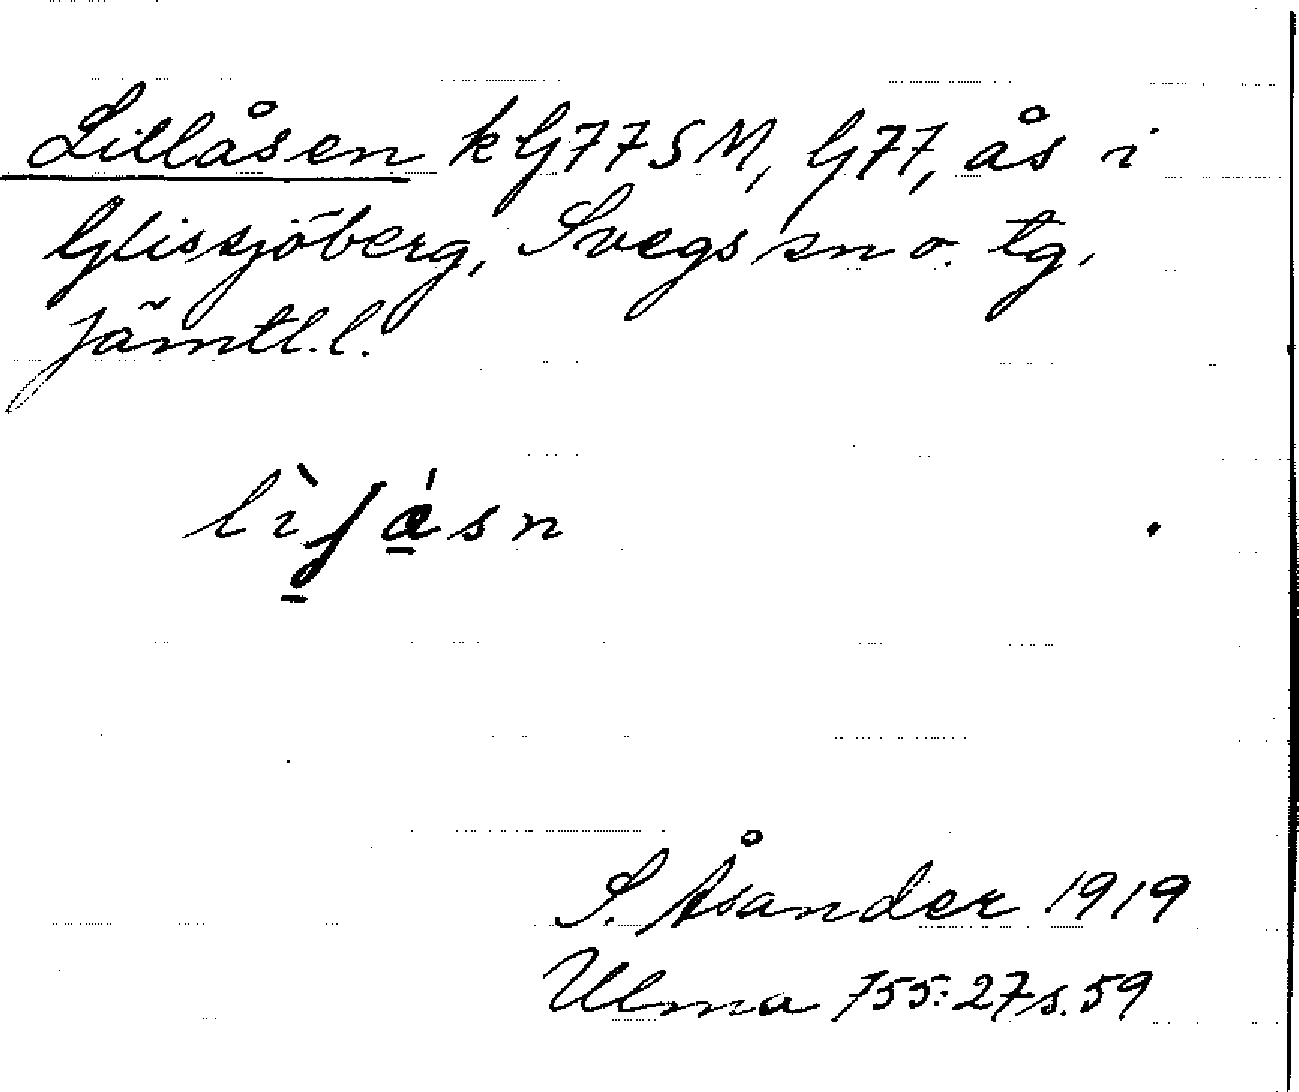 Lillåsen k G77SM, G77, ås i
Glissjöberg, Svegs sn o. tg.
Jämtl. l.
S. Åsander 1919
Ulma 755:27 s. 59